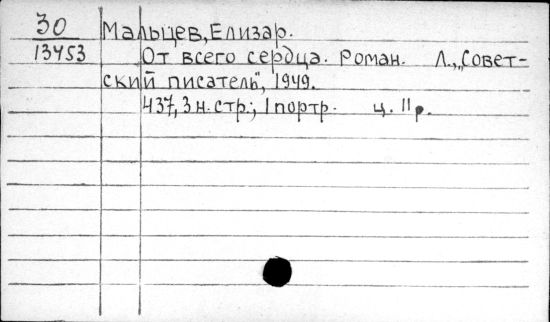 30 Мальцев, Елизар.
13453 От всего сердца. Роман. Л., „Совет-
ский писатель", 1949.
437, 3 н. стр., 1 портр. ц. 11 р.